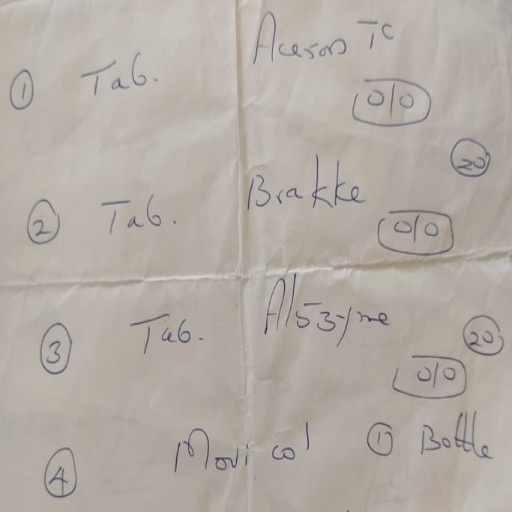 ① Tab. Aceson TC
0|0
② Tab. Brakke 20
0|0
③ Tab. Al53yme 20
0|0
④ Movicol ① Bottle